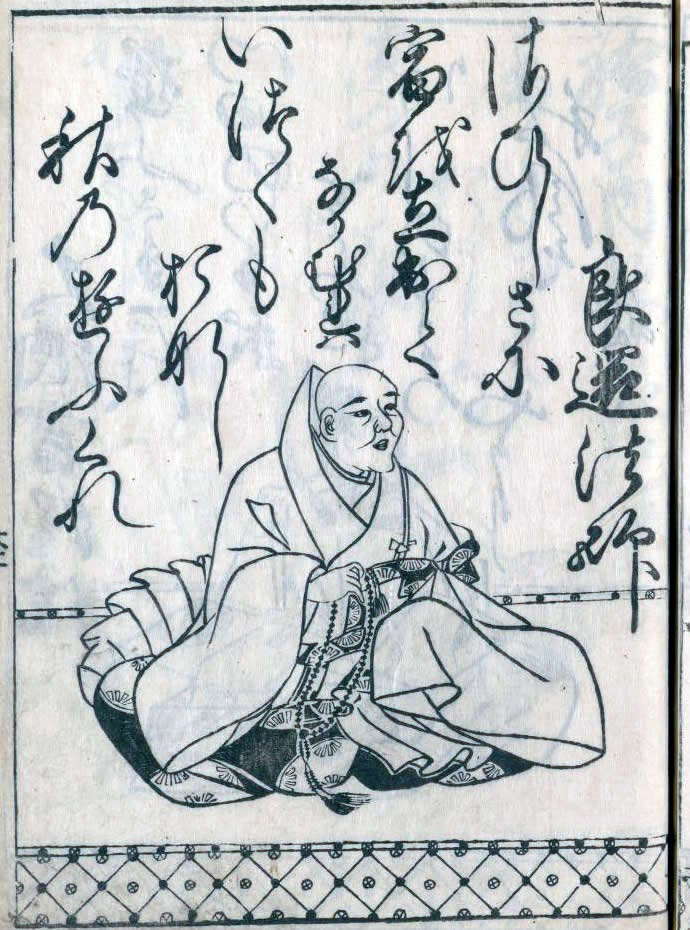 良暹法師
さひしさに
宿を立出て
なかむれハ
いつくも
おなし
秋のゆふくれ